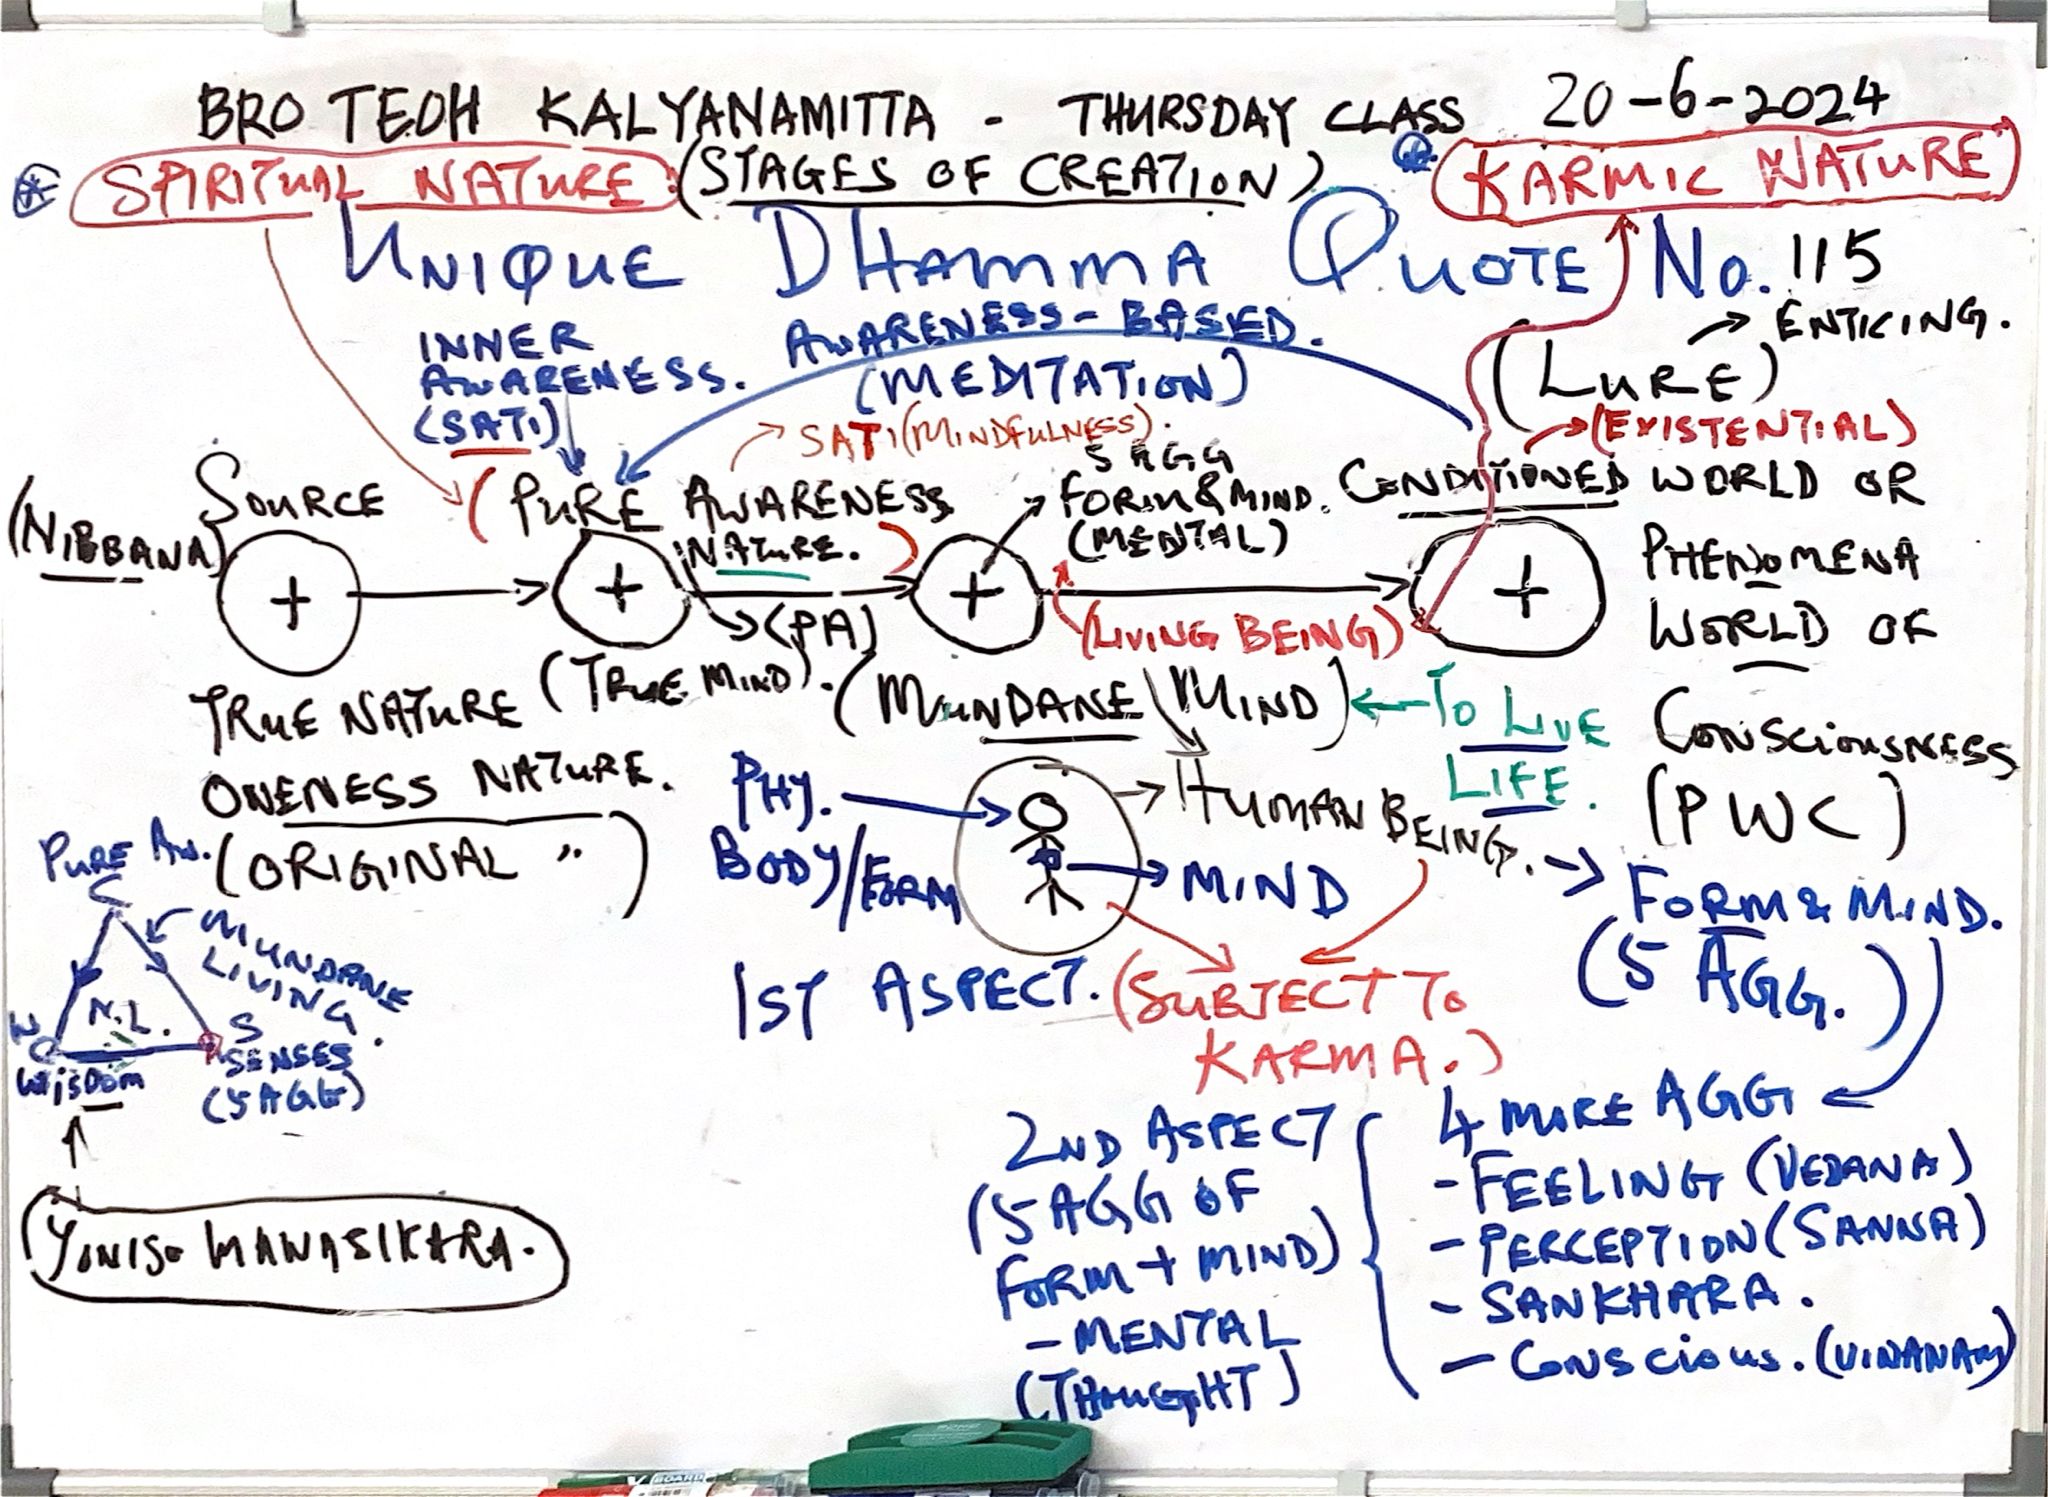 BRO TEOH KALYANAMITTA - THURSDAY CLASS 20-6-2024
SPIRITUAL NATURE : (STAGES OF CREATION) KARMIC NATURE
UNIQUE DHAMMA QUOTE No. 115
(LURE) → ENTICING.
→ (EXISTENTIAL)
INNER
AWARENESS.
(SATI)
AWARENESS-BASED.
(MEDITATION)
SATI (MINDFULNESS).
(NIBBANA)
SOURCE
(PURE AWARENESS
NATURE.)
→ (PA)
5 AGG
FORM & MIND.
(MENTAL)
CONDITIONED WORLD OR
PHENOMENA
WORLD OF
CONSCIOUSNESS
(PWC)
(LIVING BEING)
TRUE NATURE
ONENESS NATURE.
(ORIGINAL ")
(TRUE MIND).
(MUNDANE MIND) ← TO LIVE
LIFE.
PHY.
BODY/FORM
→ HUMAN BEING.
→ MIND
→ FORM & MIND.
(5 AGG.)
1ST ASPECT.
(SUBJECT TO
KARMA.)
PURE AW.
C
MUNDANE
LIVING.
N.L.
W
WISDOM
S
SENSES
(5 AGG)
YONISO MANASIKARA.
2ND ASPECT
(5 AGG OF
FORM + MIND)
- MENTAL
(THOUGHT)
4 MORE AGG
- FEELING (VEDANA)
- PERCEPTION (SANNA)
- SANKHARA.
- CONSCIOUS. (VINANAM)